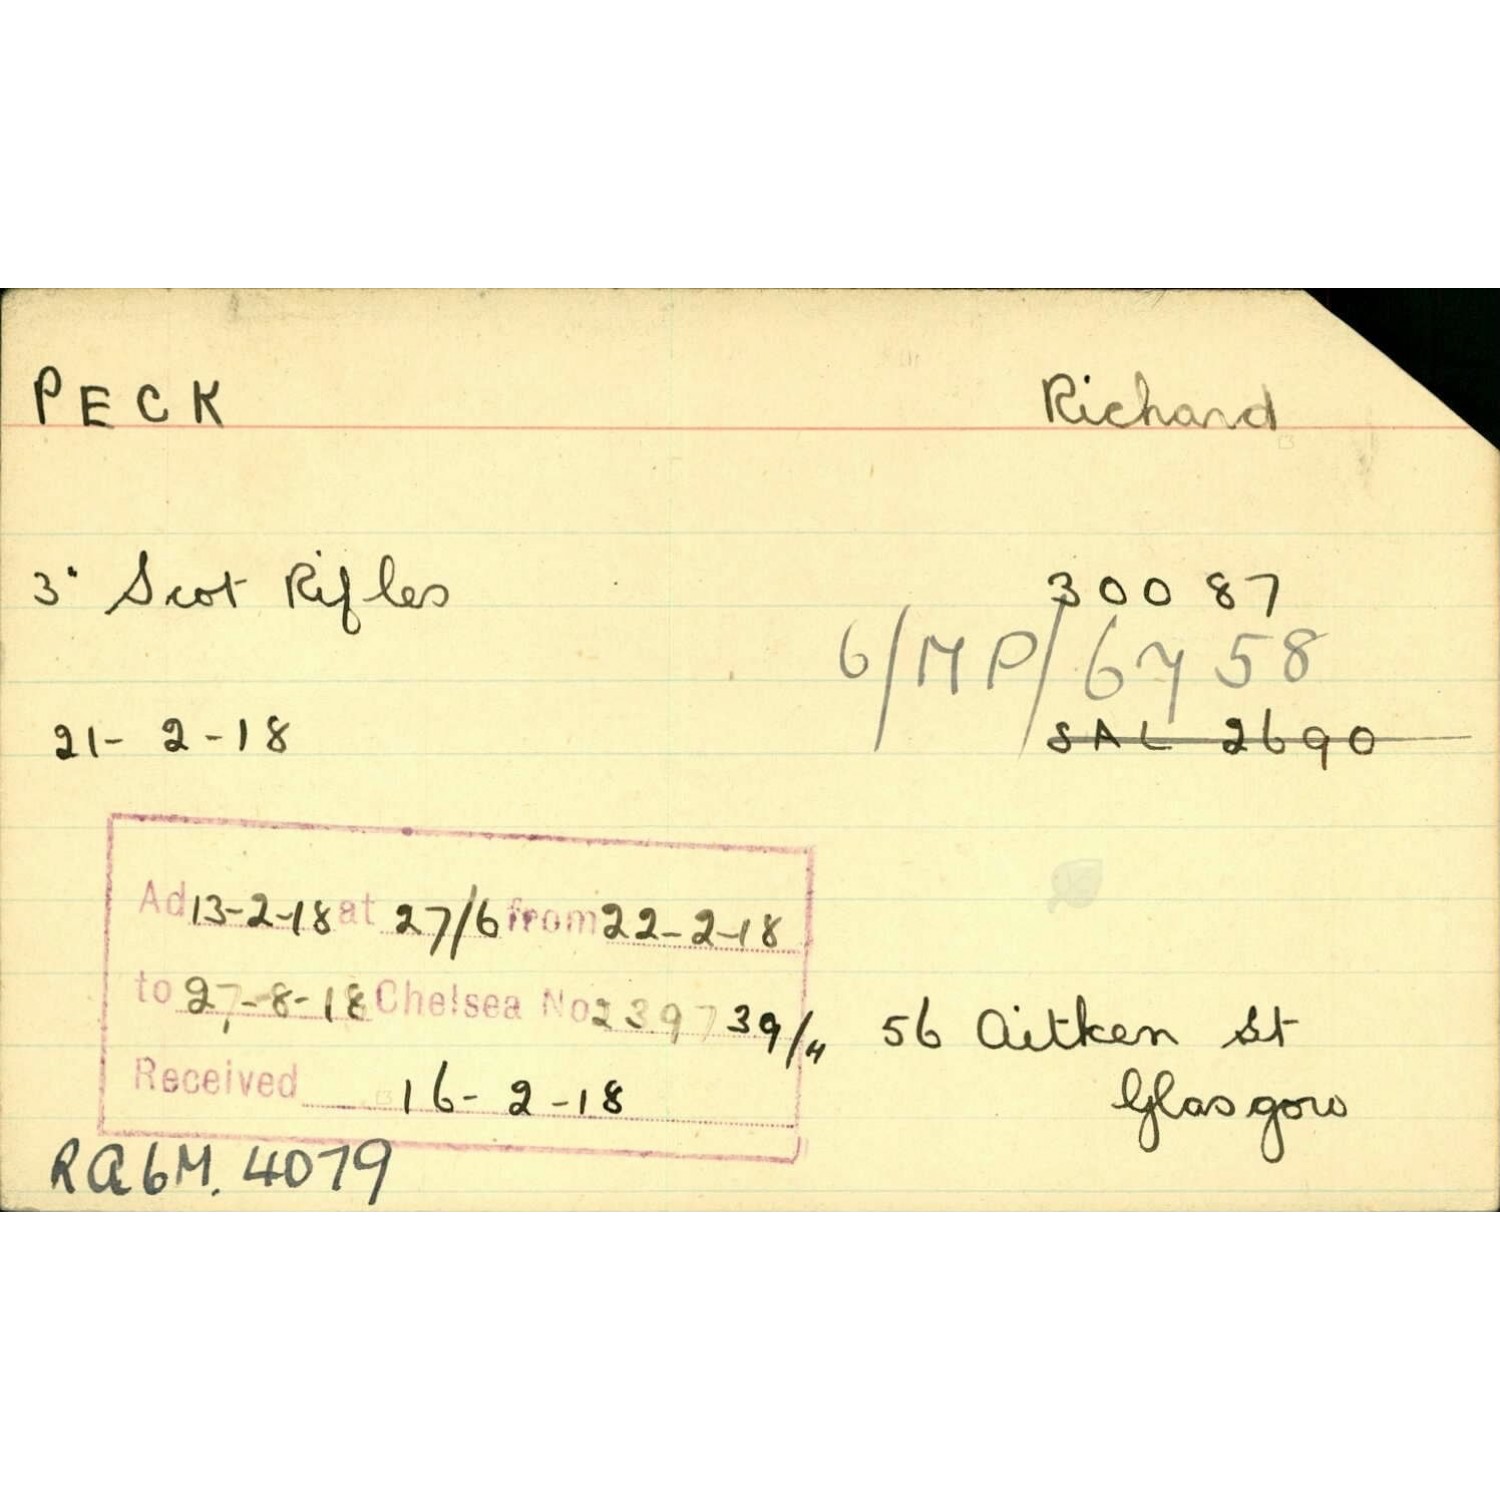 PECK Richard
3" Scot Rifles 30087
6/MP/6758
21-2-18 SAL 2690
Ad 13-2-18 at 27/6 from 22-2-18
to 27-8-18 Chelsea No 239739/H
56 Aitken St
Received 16-2-18
Glasgow
RQ6M. 4079